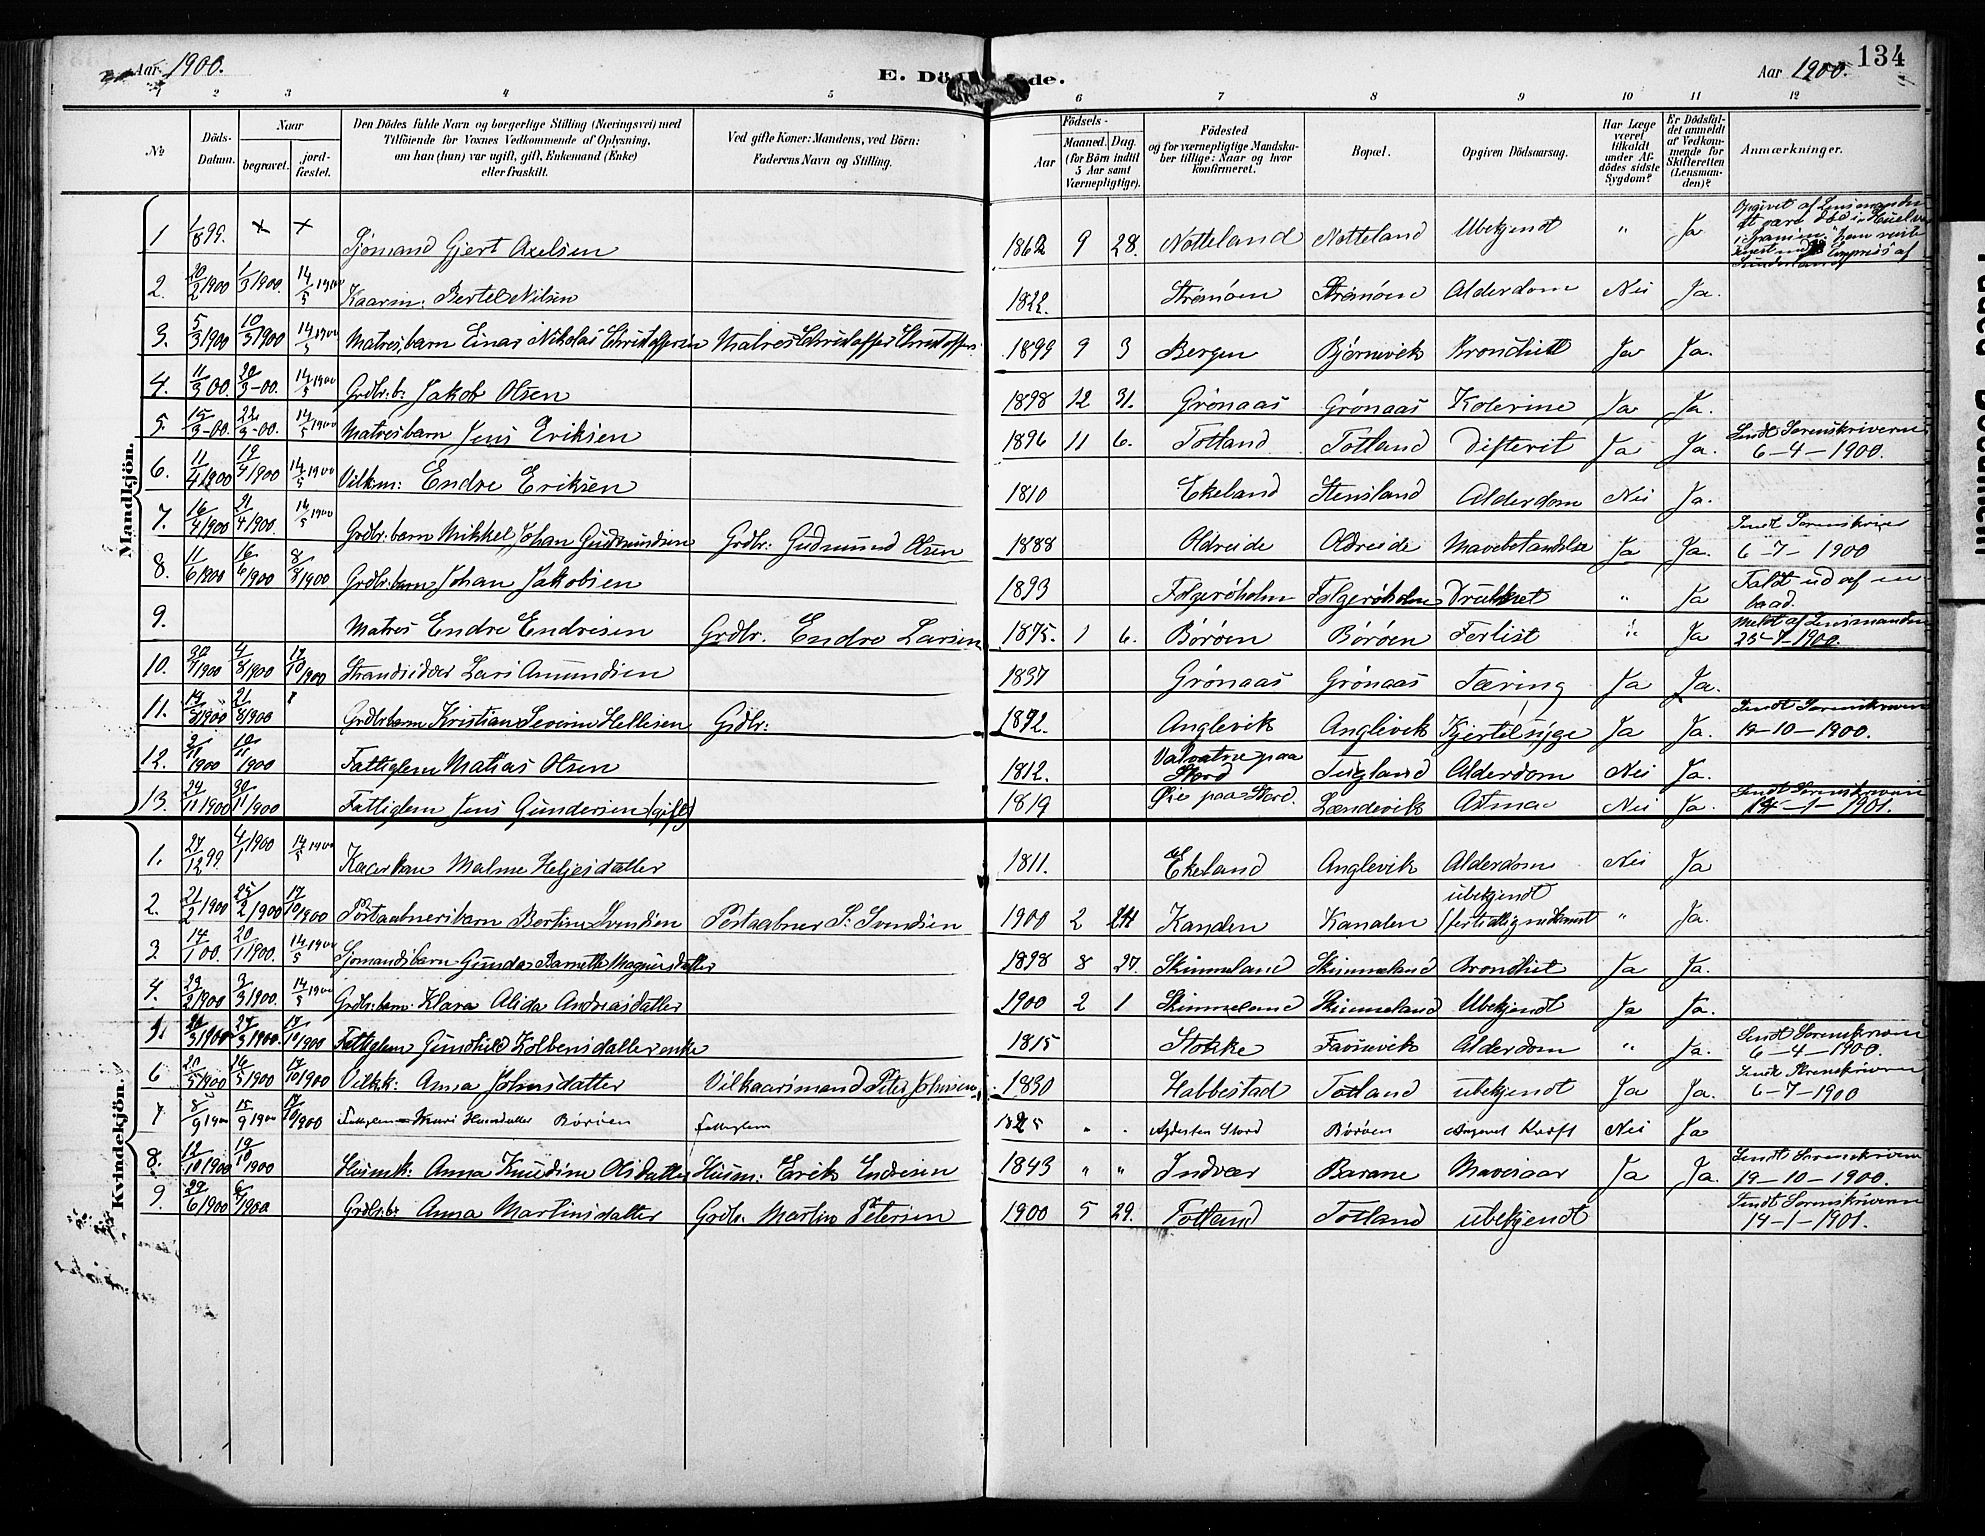 Aar 1900.
E. Dö de.
Aar 1900.
134
1 2 3 4 5 6 7 8 9 10 11 12
No
Döds-Datum.
Naar
begravet.
jord-fæstet.
Den Dödes fulde Navn og borgerlige Stilling (Næringsvei) med
Tilföiende for Voxnes Vedkommende af Oplysning,
om han (hun) var ugift, gift, Enkemand (Enke)
eller fraskilt.
Ved gifte Koner: Mandens, ved Börn:
Faderens Navn og Stilling.
Födsels-
Aar
Maaned. Dag.
(for Börn indtil
5 Aar samt
Værnepligtige).
Födested
og for værnepligtige Mandska-
ber tillige: Naar og hvor
konfirmeret.
Bopæl.
Opgiven Dödsaarsag.
Har Læge
været
tilkaldt
under Af-
dödes sidste
Sygdom?
Er Dödsfal-
det anmeldt
af Vedkom-
mende for
Skifteretten
(Lensman-
den)?
Anmærkninger.
Mandkjön.
1 1/8 99. × × Sjømand Gjert Axelsen 1862 9 28. Notteland Notteland Ubekjendt " Ja Opgivet af Lensmanden
2. 20/2 1900 1/3 1900. 14/5 1900 Kaarm: Bertel Nilsen 1822. Strønøen Strønøen Alderdom Nei Ja.
3. 5/3 1900 10/3 1900 14/5 1900 Matros barn Einar Nikolas Christoffersen Matros Christoffer Christoffers. 1899 9 3 Bergen Bjørnevik Bronchitt Ja Ja.
4. 11/3 00. 20/3 -00. 14/5 1900 Grdbr.b: Jakob Olsen 1898 12 31. Grønaas Grønaas Kolerine Ja Ja.
5. 15/3 -00. 22/3 -00. 14/5 1900 Matrosbarn Jens Eriksen 1896 11 6. Totland Totland Difterit Ja Ja. Sendt Sorenskriveren
6-4-1900.
6. 11/4 1900 19/4 1900 14/5 1900 Vilkm: Endre Eriksen 1810 Ekeland Stensland Alderdom Nei Ja.
7. 16/4 1900 21/4 1900. 14/5 1900 Grdbr: barn Mikkel Johan Gudmundsen Grdbr: Gudmund Olsen 1888 Aldreide Aldreide Mavebetændelse Ja Ja. Sendt Sorenskriver
6-7-1900
8. 11/6 1900 16/6 1900 8/8 1900 Grdbr: barn Johan Jakobsen 1893 Folgerøholm Folgerøholm Druknet " Ja Faldt ud af en
baad.
9. Matros Endre Endresen Grdbr. Endre Larsen 1875. 1 6. Børøen Børøen Forlist " Ja Meldt af Lensmanden
25-7-1900.
10. 30/7 1900 4/8 1900 17/10 1900 Strandsidder Lars Amundsen 1837 Grønaas Grønaas Tæring Ja Ja.
11. 21/8 1900 Grdbr.barn Kristian Severin Hellesen Grdbr: 1892. Anglevik Anglevik Kjertelsyge Ja Ja. Sendt Sorenskriveren
19-10-1900.
12. 10/11 1900 Fattiglem Matias Olsen 1812. Valvatne paa
Stord Alderdom Nei Ja.
13. 24/11 1900 30/11 1900 Fattiglem Jens Gundersen (gift) 1819 Øie paa Stord. Lændevik Astma Nei Ja. Sendt Sorenskriveren
14-1-1901.
Kvindekjön.
1. 27/12 99. 4/1 1900 14/5 1900 Kaarkone Malene Heljesdatter 1811. Ekeland Anglevik Alderdom Nei Ja
2. 21/2 1900 25/2 1900 17/10 1900 Postaabnersbarn Bertine Svendsen Postaabner S. Svendsen 1900 2 Kanalen Kanalen ubekjendt
" Ja.
3 14/1 00. 20/1 1900. 14/5 1900 Sjømandsbarn Gunda Magnusdatter 1898 8 27. Skimmeland Skimmeland Bronchit Ja Ja.
4. 2/1900 3/3 1900. 14/5 1900 Grdbr: barn Klara Alida Andreasdatter 1900 2 1 Skimmeland Skimmeland Ubekjendt Ja Ja.
5. 20/3 1900 27/3 1900. 17/10 1900 Fattiglem Gunhild Kolbensdatter enke 1815 Stokke Favnevik Alderdom " Ja. Sendt Sorenskriveren
6-4-1900.
6 20/5 1900 26/5 1900 17/10 1900 Vilkk: Anna Johnsdatter Vilkaarsmand Peter Johnsen 1830 Habbestad Totland ubekjendt Ja Ja. Sendt Sorenskriveren
6-7-1900
7. 8/9 1900 15/9 1900 17/10 1900 Fattiglem Hansdatter Børøen Fattiglem 1825 " " Stord Børøen Kræft Nei Ja
8. 12/10 1900 19/10 1900 Husmk: Anna Knudine Olsdatter Husm: Erik Endresen 1843 " " Indvær Barane Mavesaar Ja Ja. Sendt Sorenskriveren
19-10-1900.
9. 29/6 1900 1900 Grdbr.b: Anna Martinsdatter Grdbr. Martin Petersen 1900 5 29. Totland Totland ubekjendt Sendt Sorenskriveren
14-1-1901.